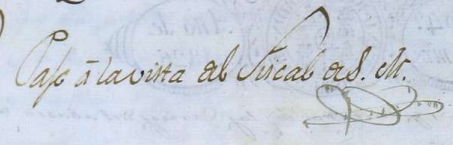 Pase á la vista al Fiscal de S. M.